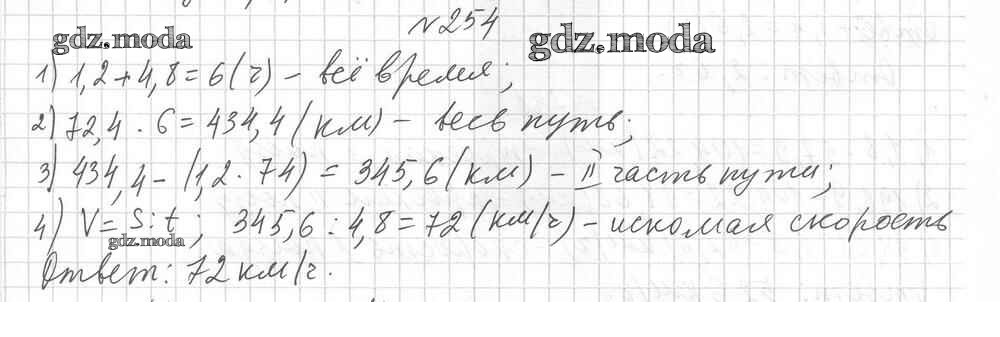 №254
gdz.moda gdz.moda
1) 1,2+4,8=6(ч) – всё время;
2) 72,4 · 6 = 434,4 (км) – весь путь;
3) 434,4 – (1,2 · 74) = 345,6 (км) – II часть пути;
4) V= S:t ; 345,6 : 4,8 = 72 (км/ч) – искомая скорость
gdz.moda
Ответ: 72 км/ч.